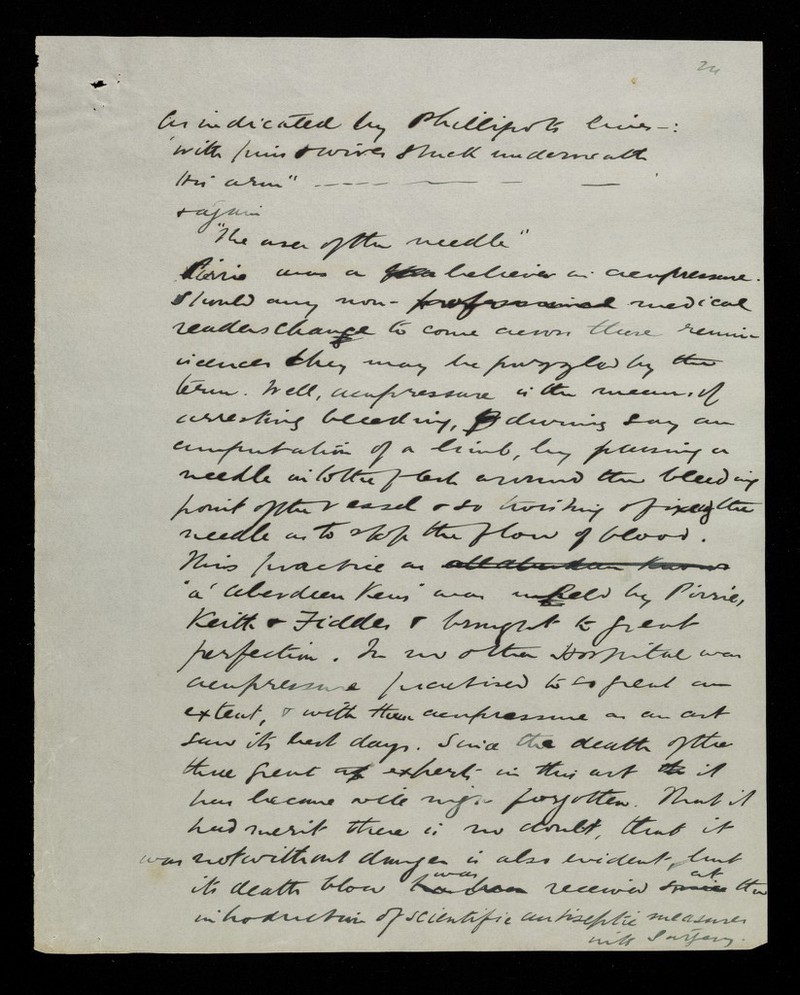 24
As indicated by Phillipots lines—:
"with pins & wires stuck underneath
His arm" — — — — —
& again
"The user of the needle"
Pirrie was a believer in acupressure.
Should any non- professional medical
readers chance to come across these remin-
iscences they may be puzzled by the
term. Well, acupressure is the means of
arresting bleeding, during say an
amputation of a limb, by passing a
needle into the flesh around the bleeding
point of the vessel & so twisting & fixing the
needle as to stop the flow of blood.
This practice as all aberdeen knows
'a' Aberdeen Kens' was upheld by Pirrie,
Keith & Fiddes & brought to great
perfection. In no other Hospital was
acupressure practised to so great an
extent, & with them acupressure as an art
saw its best days. Since the death of the
three great experts in this art it
has become well nigh forgotten. That it
had merit there is no doubt, that it
was not without danger is also evident, but
its death blow has been was received since at the
introduction of scientific antiseptic measures
into Surgery.